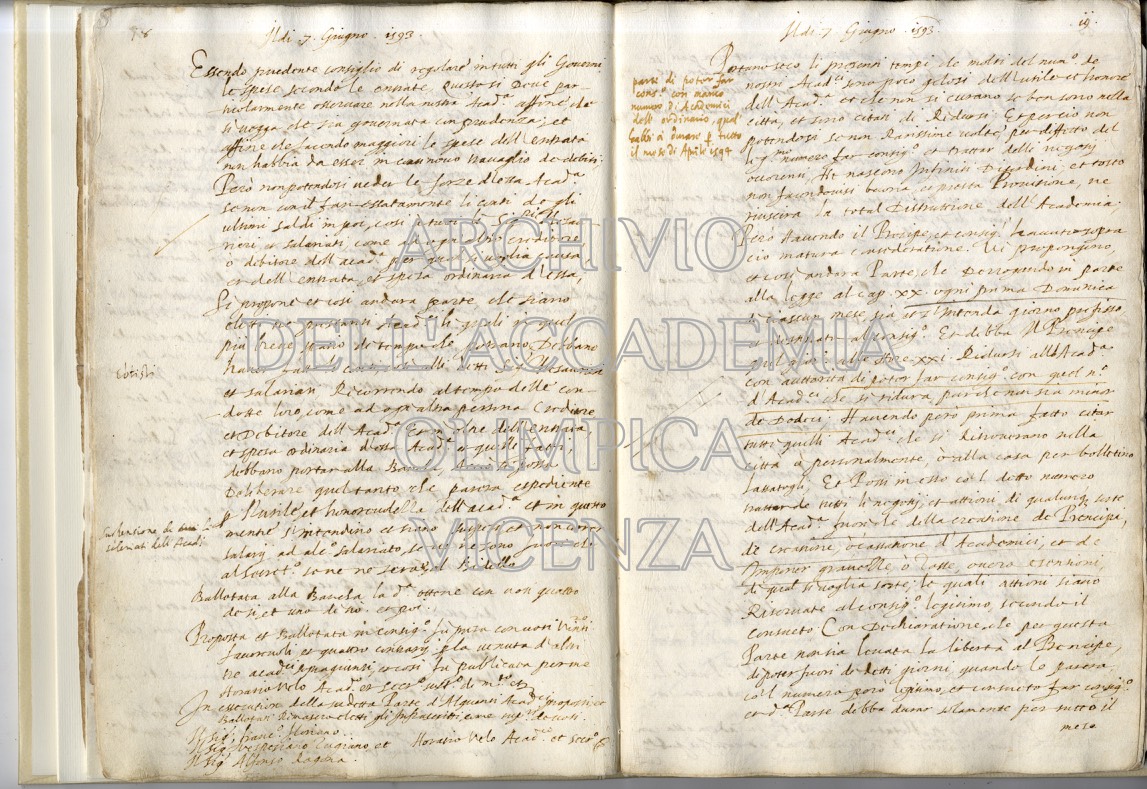 Il di 7. Giugno. 1593.
Essendo prudente consiglio di regolare in tutti gli Governi
le spese secondo le entrate, questo si deve par-
ticolarmente osservare nella nostra Acad.a affine che
si vegga che sia governata con prudenza, et
affine che facendo maggiori le spese dell'entrata
non habbia da esser in travaglio de debiti;
Però non potendosi veder le forze d'essa Acad.a
se non con il far essatamente li conti de gli
ultimi saldi in poi, così à tutti li SS.ri Thesau-
rieri, et salariati, come ad ogn'altro creditore,
ò debitore dell'acad.a per qual si voglia causa,
et dell'entrata, et spesa ordinaria d'essa,
Si propone et così andarà parte che siano
eletti tre prestanti Acad.ci li quali in quel
più breve spatio di tempo che potranno debbano
haver fatto li conti à tutti SS.ri Thesaurieri
et salariati Ricorrendo al tempo delle con-
dotte loro, come ad ogn'altra persona Creditore
et Debitore dell'Acad.a
et spesa ordinaria d'essa Acad.a, et quelli fatti,
debbano portar alla Banca, acciò si possa
Deliberare quel tanto che parerà espediente
p l'utile et honorevole dell'acad.a et in questo
mentre s'intendino et siano suspesi
salarij ad alc.o salariato,
al Secret.o
Ballotata alla Banca la d.a ottene con voti quattro
de si, et uno di no. et poi.
Proposta et Ballotata in consig.o fu presa con voti vinti
favorevoli et quattro contrarij p la venuta d'altri
tre acad.ci sopragiunti, et così fu publicata per me
Horatio Velo Acad.co et Secr.o
In essecution della sudetta Parte d'Alquanti Acad.ci proposti, et
Ballotati Rimasero eletti gli Infrascritti,
Il Sig.r Franc.o
Il Sig.r Vespesiano Zugiano et Horatio Velo Acad.co et Secr.o
Il Sig.r Alfonso Ragona.
Il di 7. Giugno. 1593.
19.
parte di poter far
cons.o con manco
numero di Academici
dell'ordinario, qual
habbi à durare p tutto
il mese di Aprile 1594
nostri Acad.ci sono poco gelosi dell'utile et honore
dell'Acad.a et che non si curano se ben sono nella
città, et sono citati di Ridursi. Et perciò non
potendosi se non Rarissime volte per diffetto del
legitimo numero far consig.o et trattar delli negotij
occorenti, Ne nascono Infiniti Disordini, et tosto
non facendovisi buona, et presta Provisione, ne
riuscirà la total Distruttione dell'Academia.
Però havendo il Principe, et consig.i havuto sopra
ciò matura consideratione. Vi propongono
et così andarà Parte, che Derogando in parte
alla legge al cap. XX. ogni prima Domenica
di ciascun mese, sia et s'intenda giorno prefisso
et destinato al consig.o Et debba Il Principe
XXI. Ridursi all'Acad.a
con auttorità di poter far consig.o con quel n.o
d'Acad.ci che si ridurà, purchè non sia minor
de Dodeci, Havendo però prima fatto citar
tutti quelli Acad.ci che si ritroverano nella
città ò personalmente, ò alla casa per bolletino
lassatogli. Et Possi in esso co'l detto numero
trattar de tutti li negotij, et attioni di qualunq. sorte
dell'Acad.a fuor che della creatione de Principi,
de creatione, ò cassatione d'Academici, et de
Imponer gravezze, ò Dotte, overo essentioni,
di qual si voglia sorte, le quali attioni siano
Riservate al consig.o legitimo, secondo il
consueto Con Dechiaratione, che per questa
Parte non sia levata la libertà al Principe,
di poter fuori de detti giorni, quando le parerà
co'l numero però legitimo, et consueto far consig.o
et d.a Parte debba durar solamente per tutto il
mese
ARCHIVIO
DELL'ACCADEMIA
OLIMPICA
VICENZA